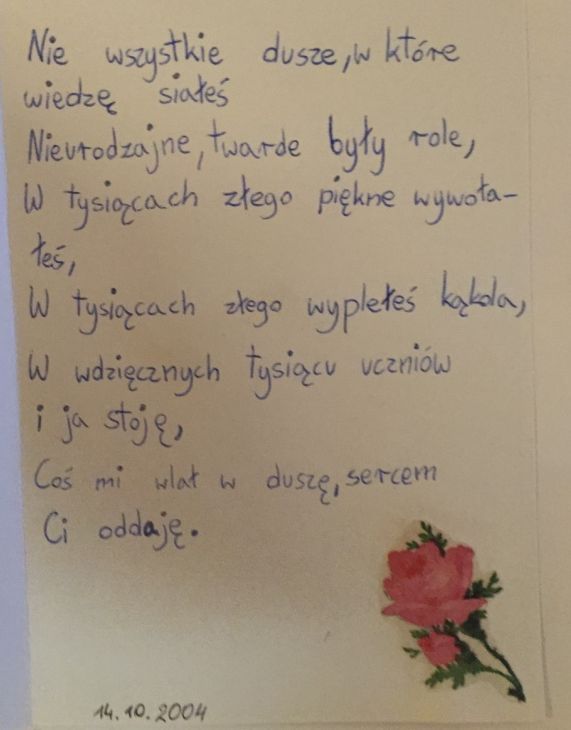 Nie wszystkie dusze, w które
wiedzę siałeś
Nieurodzajne, twarde były role,
W tysiącach złego piękne wywoła-
łeś,
W tysiącach złego wyplełeś kąkola,
W wdzięcznych tysiącu uczniów
i ja stoję,
Coś mi wlał w duszę, sercem
Ci oddaję.
14.10.2004